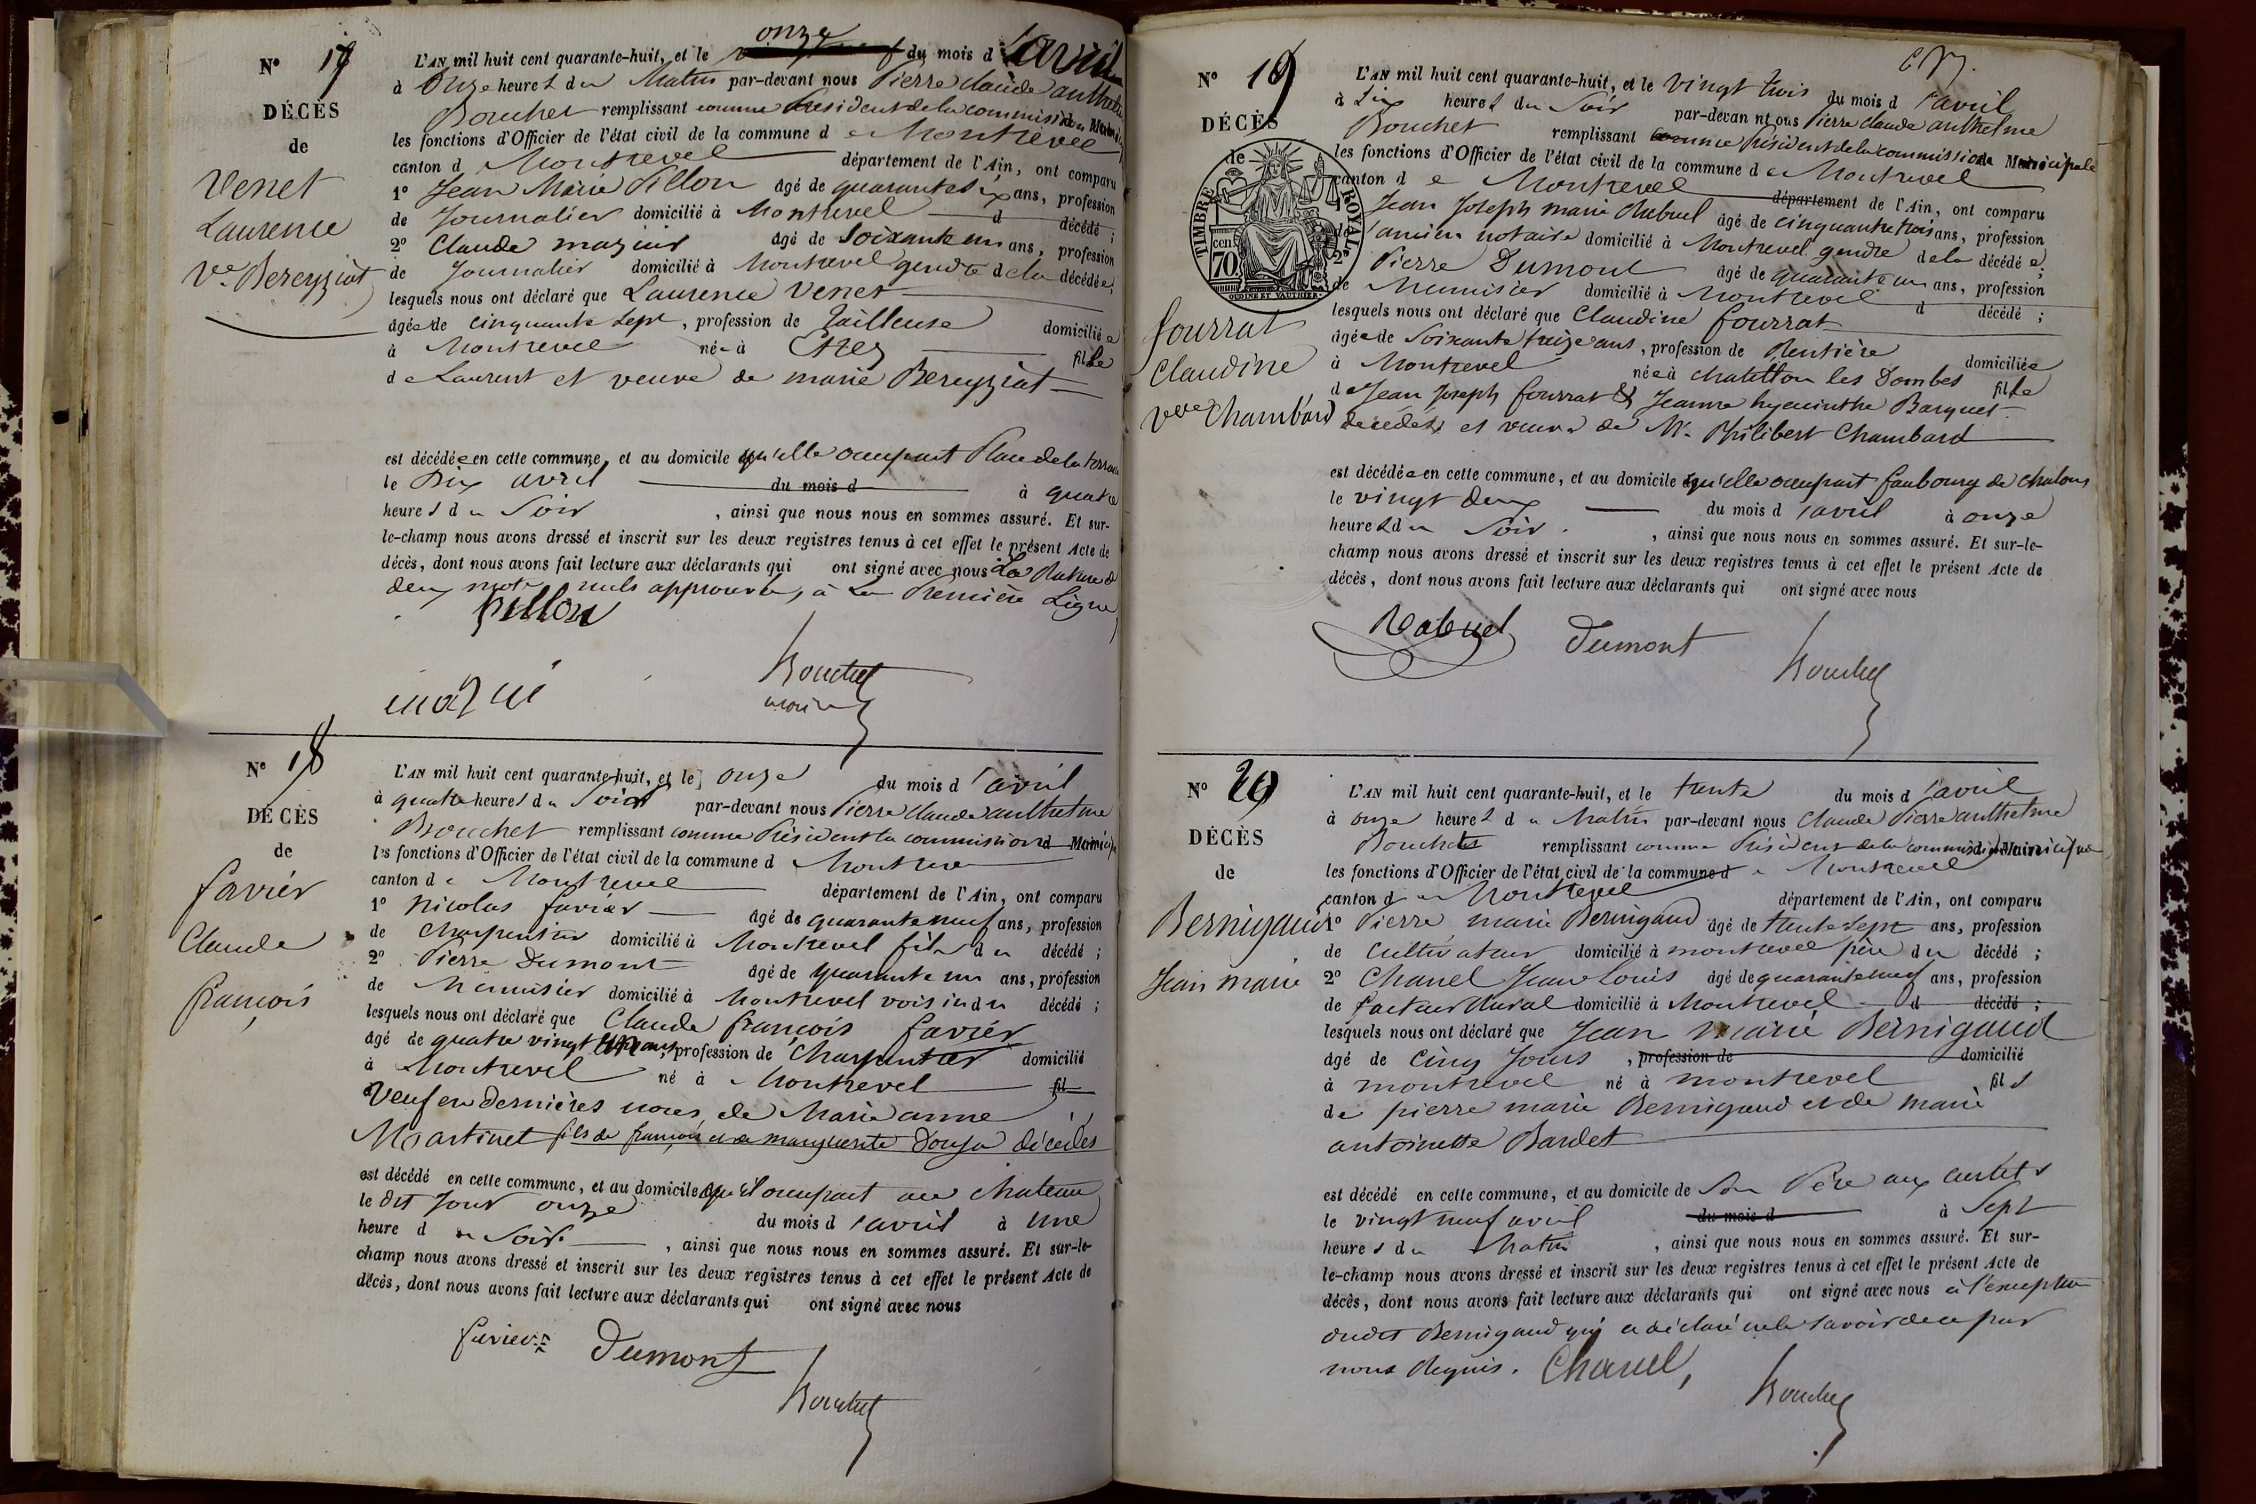 N° 17
DÉCÈS
de
Venet
Laurence
Ve Bereyziat
L'AN mil huit cent quarante-huit, et le onze du mois d'avril
à Onze heures du Matin par-devant nous Pierre Claude anthelme
Bouchet remplissant comme Président de la commission Municipale
les fonctions d'Officier de l'état civil de la commune de Montrevel
canton de Montrevel département de l'Ain, ont comparu
1° Jean Marie Pillon âgé de quarante six ans, profession
de Journalier domicilié à Montrevel d décédé ;
2° Claude mazuir âgé de Soixante un ans, profession
de Journalier domicilié à Montrevel gendre de la décédée ;
lesquels nous ont déclaré que Laurence Venet
âgée de cinquante sept, profession de Tailleuse domiciliée
à Montrevel née à Etrez fille
de Laurent et veuve de marie Bereyziat
est décédée en cette commune, et au domicile qu'elle occupait Place de la terrasse
le Dix avril du mois d à quatre
heures du Soir, ainsi que nous nous en sommes assuré. Et sur-
le-champ nous avons dressé et inscrit sur les deux registres tenus à cet effet le présent Acte de
décès, dont nous avons fait lecture aux déclarants qui ont signé avec nous La Rature de
deux mots nuls approuvée, à La Première Ligne
Pillon
mazui
Bouchet
maire
N° 18
DÉCÈS
de
favier
Claude
françois
L'AN mil huit cent quarante-huit, et le onze du mois d'avril
à quatre heures du Soir par-devant nous Pierre Claude anthelme
Bouchet remplissant comme Président la commission d Municipe
les fonctions d'Officier de l'état civil de la commune d Montreve
canton de Montrevel département de l'Ain, ont comparu
1° Nicolas favier âgé de quarante neuf ans, profession
de Charpentier domicilié à Montrevel fils du décédé ;
2° Pierre Dumont âgé de quarante un ans, profession
de Menuisier domicilié à Montrevel voisin du décédé ;
lesquels nous ont déclaré que Claude françois favier
âgé de quatre vingt un ans, profession de Charpentier domicilié
à Montrevel né à Montrevel fil
Veuf en dernières noces de Marie anne
Martinet fils de françois et de marguerite Douja décédés
est décédé en cette commune, et au domicile qu'il occupait au chateau
le dit Jour onze du mois d'avril à Une
heure d u Soir, ainsi que nous nous en sommes assuré. Et sur-le-
champ nous avons dressé et inscrit sur les deux registres tenus à cet effet le présent Acte de
décès, dont nous avons fait lecture aux déclarants qui ont signé avec nous
favier
Dumont
Bouchet
N° 19
DÉCÈS
de
TIMBRE ROYAL
70 cen
OUDINE ET VAUTHIER
fourrat
Claudine
Vve Chambard
L'AN mil huit cent quarante-huit, et le Vingt trois du mois d'avril
à Six heures du Soir par-devan nt ous Pierre Claude anthelme
Bouchet remplissant comme Président de la commission Municipale
les fonctions d'Officier de l'état civil de la commune de Montrevel
canton de Montrevel département de l'Ain, ont comparu
Jean Joseph marie Rabuel âgé de cinquante trois ans, profession
de ancien notaire domicilié à Montrevel gendre de la décédée ;
2° Pierre Dumont âgé de quarante un ans, profession
de Menuisier domicilié à Montrevel d décédé ;
lesquels nous ont déclaré que Claudine fourrat
âgée de Soixante treize ans, profession de Rentière domiciliée
à Montrevel née à chatillon les Dombes fille
de Jean Joseph fourrat & Jeanne hyacinthe Barquet
décédés, et veuve de Mr. Philibert Chambard
est décédée en cette commune, et au domicile qu'elle occupait faubourg de chalons
le vingt deux du mois d'avril à onze
heures du Soir, ainsi que nous nous en sommes assuré. Et sur-le-
champ nous avons dressé et inscrit sur les deux registres tenus à cet effet le présent Acte de
décès, dont nous avons fait lecture aux déclarants qui ont signé avec nous
Rabuel
Dumont
Bouchet
N° 20
DÉCÈS
de
Bernigaud
Jean marie
L'AN mil huit cent quarante-huit, et le trente du mois d'avril
à onze heures du Matin par-devant nous Claude Pierre anthelme
Bouchet remplissant comme Président de la commission Municipale
les fonctions d'Officier de l'état civil de la commune de Montrevel
canton de Montrevel département de l'Ain, ont comparu
1° Pierre marie Bernigaud âgé de trente sept ans, profession
de Cultivateur domicilié à montrevel père du décédé ;
2° Chanel Jean Louis âgé de quarante neuf ans, profession
de facteur Rural domicilié à Montrevel d décédé ;
lesquels nous ont déclaré que Jean marie Bernigaud
âgé de Cinq Jours, profession de domicilié
à montrevel né à montrevel fils
de pierre marie Bernigaud et de marie
antoinette Bardet
est décédé en cette commune, et au domicile de Son Père aux curtets
le vingt neuf avril du mois d à Sept
heures du Matin, ainsi que nous nous en sommes assuré. Et sur-
le-champ nous avons dressé et inscrit sur les deux registres tenus à cet effet le présent Acte de
décès, dont nous avons fait lecture aux déclarants qui ont signé avec nous à l'exception
dudit Bernigaud qui a déclaré ne le savoir de ce par
nous Requis.
Chanel,
Bouchet